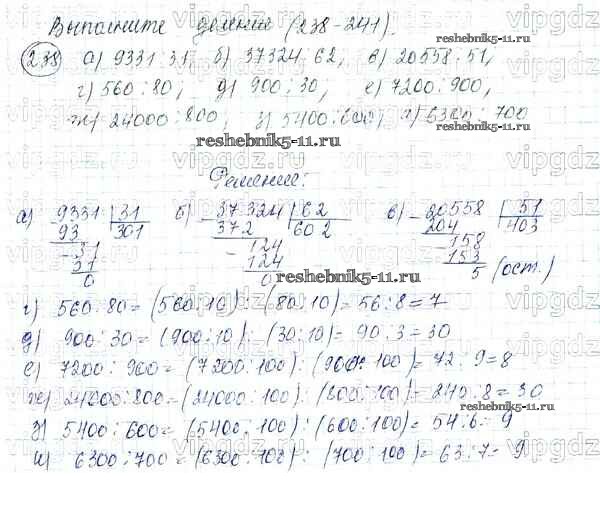 Выполните деление (238-241).
238 а) 9331:31 б) 37324:62, в) 20558:51,
г) 560:80; д) 900:30; е) 7200:900,
ж) 24000:800; з) 5400:600; и) 6300:700
reshebnik5-11.ru
Решение:
а) 9331 | 31 б) 37324 | 62 в) 20558 | 51
93 301 372 602 204 403
31 124 158
31 124 153
0 0 5 (ост.)
reshebnik5-11.ru
г) 560:80=(560:10):(80:10)=56:8=7
д) 900:30=(900:10):(30:10)=90:3=30
е) 7200:900=(7200:100):(900:100)=72:9=8
ж) 24000:800=(24000:100):(800:100)=240:8=30
reshebnik5-11.ru
з) 5400:600=(5400:100):(600:100)=54:6=9
и) 6300:700=(6300:100):(700:100)=63:7=9
vipgdz.ru